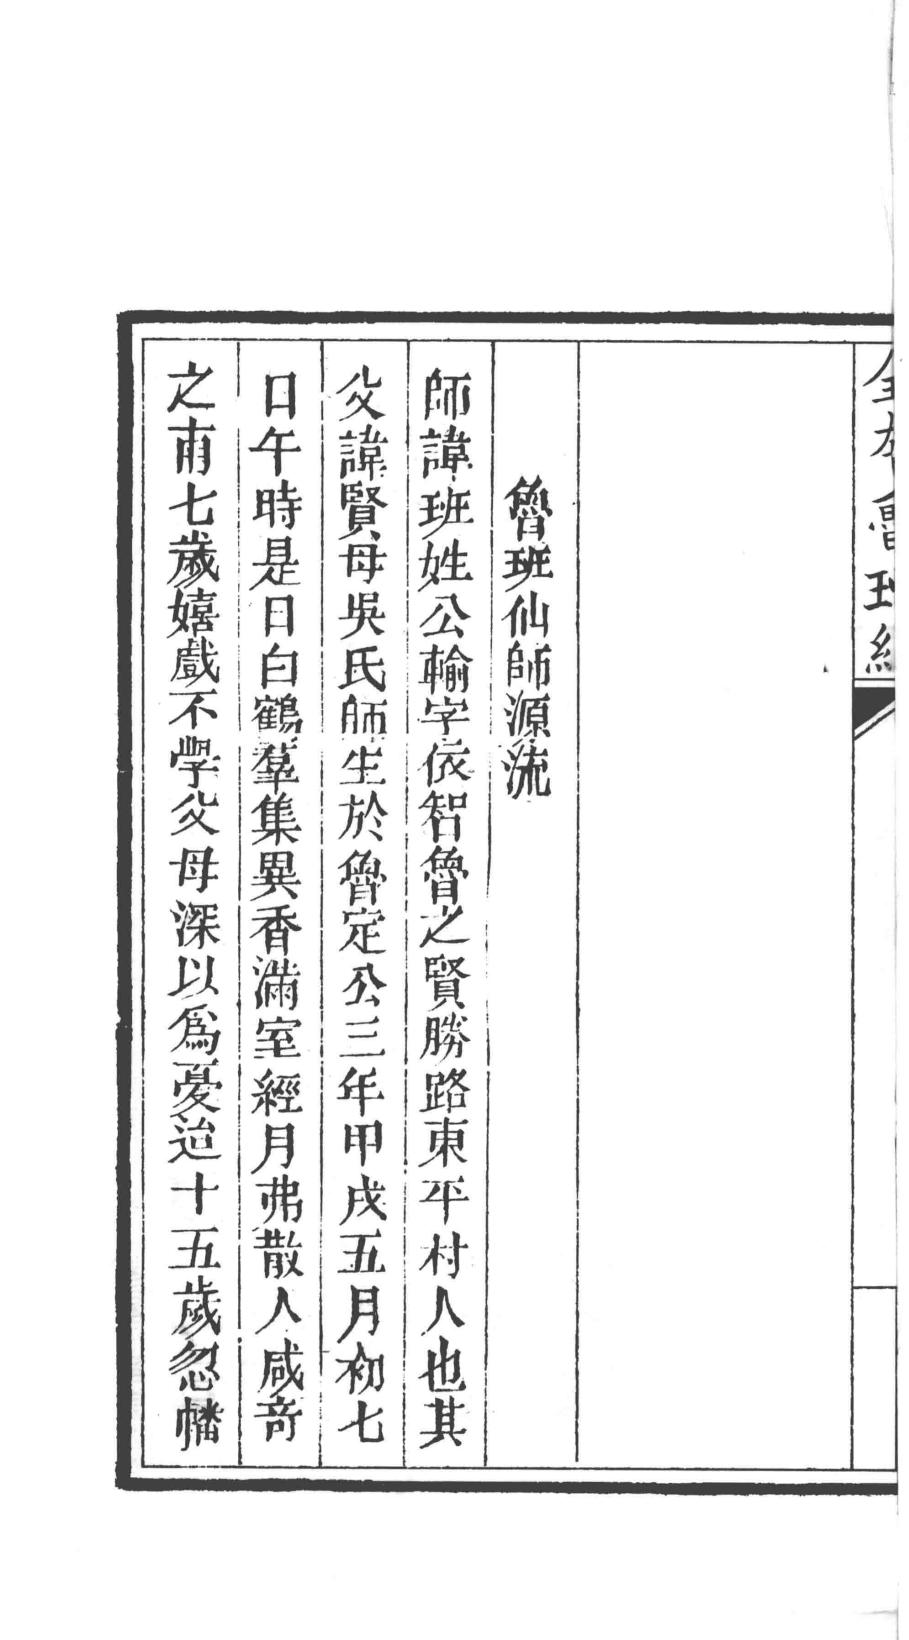 全本魯班經
魯班仙師源流
師諱班姓公輸字依智魯之賢勝路東平村人也其
父諱賢母吳氏師生於魯定公三年甲戌五月初七
日午時是日白鶴羣集異香滿室經月弗散人咸奇
之甫七歲嬉戲不學父母深以爲憂迨十五歲忽幡